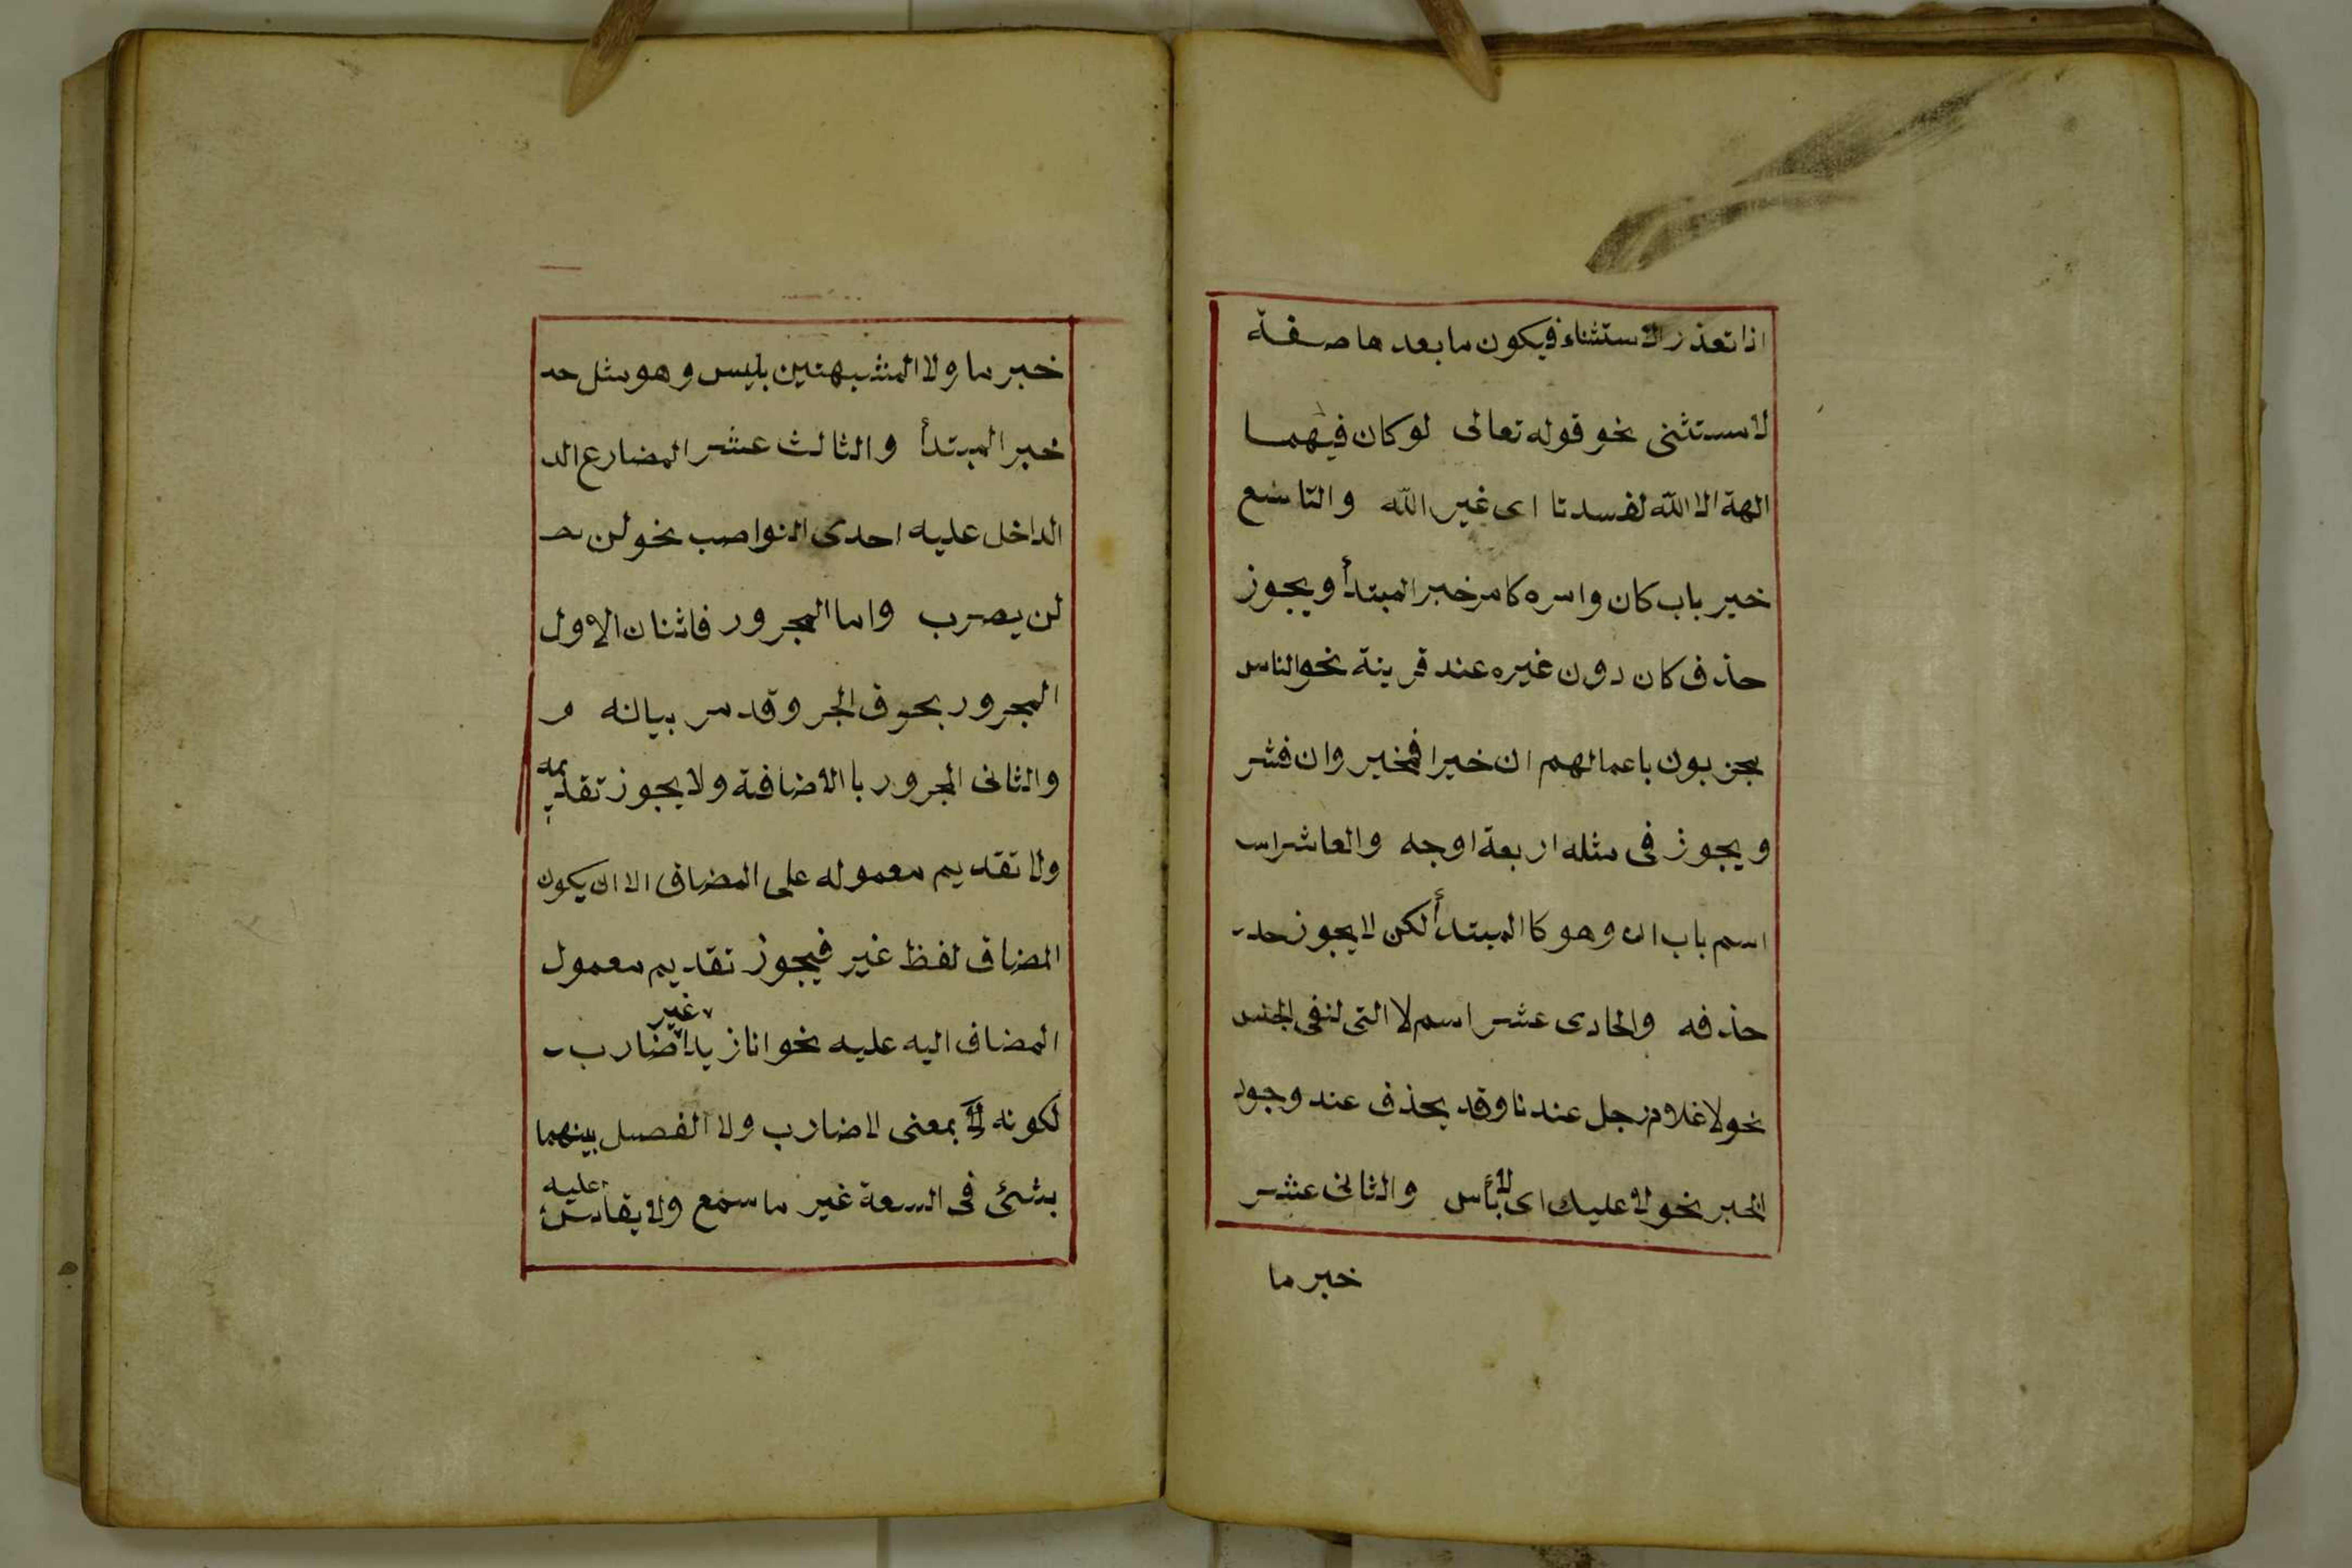 اذا تعذر الاستثناء فيكون ما بعدها صفة
لا مستثنى نحو قوله تعالى لو كان فيهما
الهة الا الله لفسدتا اى غير الله والتاسع
خبر باب كان وامره كامر خبر المبتدأ ويجوز
حذف كان دون غيره عند قرينة نحو الناس
مجزيون باعمالهم ان خيرا فخير وان فشر
ويجوز فى مثله اربعة اوجه والعاشر اس
اسم باب ان وهو كا المبتدأ لكن لا يجوز حد
حذفه والحادى عشر اسم لا التى لنفى الجنس
نحو لا غلام رجل عندنا وقد يحذف عند وجود
الخبر نحو لا عليك اى لا بأس والثانى عشر
خبر ما
خبر ما ولا المشبهتين بليس وهو مثل حد
خبر المبتدأ والثالث عشر المضارع الد
الداخل عليه احدى النواصب نحو لن يص
لن يضرب واما المجرور فاثنان الاول
المجرور بحرف الجر وقد مر بيانه و
والثانى المجرور با الاضافة ولا يجوز تقديمه
ولا تقديم معموله على المضاف الا ان يكون
المضاف لفظ غير فيجوز تقديم معمول
المضاف اليه عليه نحو انا زيدا غير ضارب
لكونه بمعنى لا ضارب ولا الفصل بينهما
بشئ فى السعة غير ما سمع ولا يقاس عليه